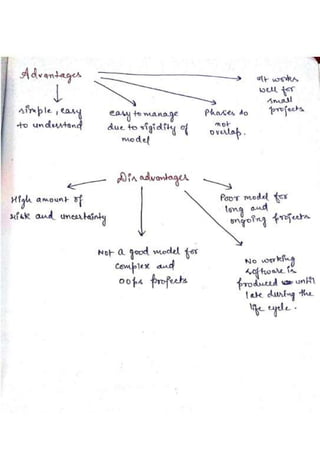 Advantages
It works
well for
small
projects
simple, easy
to understand
easy to manage
due to rigidity of
model
Phases do
not
overlap.
Disadvantages
High amount of
risk and uncertainty
Poor model for
long and
ongoing projects
Not a good model for
complex and
oops projects
No working
software is
produced until
late during the
life cycle.